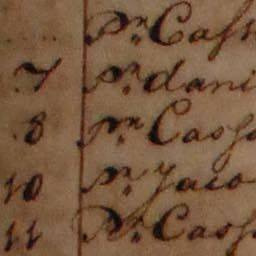 pr Cash
7 pr dani
8 pr Cash
10 pr Jaco
11 pr Cash